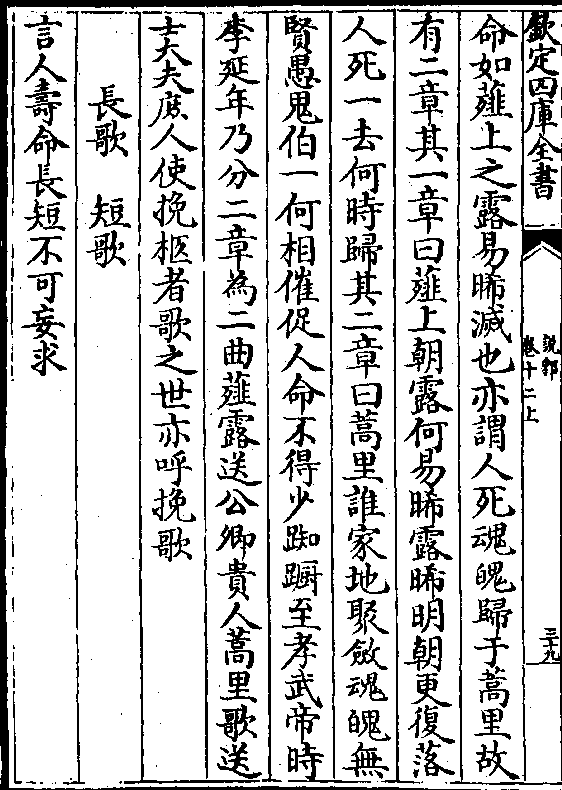 欽定四庫全書
說郛
卷十二上
三十九
命如薤上之露易晞滅也亦謂人死魂魄歸于蒿里故
有二章其一章曰薤上朝露何易晞露晞明朝更復落
人死一去何時歸其二章曰蒿里誰家地聚斂魂魄無
賢愚鬼伯一何相催促人命不得少踟蹰至孝武帝時
李延年乃分二章為二曲薤露送公卿貴人蒿里歌送
士大夫庶人使挽柩者歌之世亦呼挽歌
長歌 短歌
言人壽命長短不可妄求